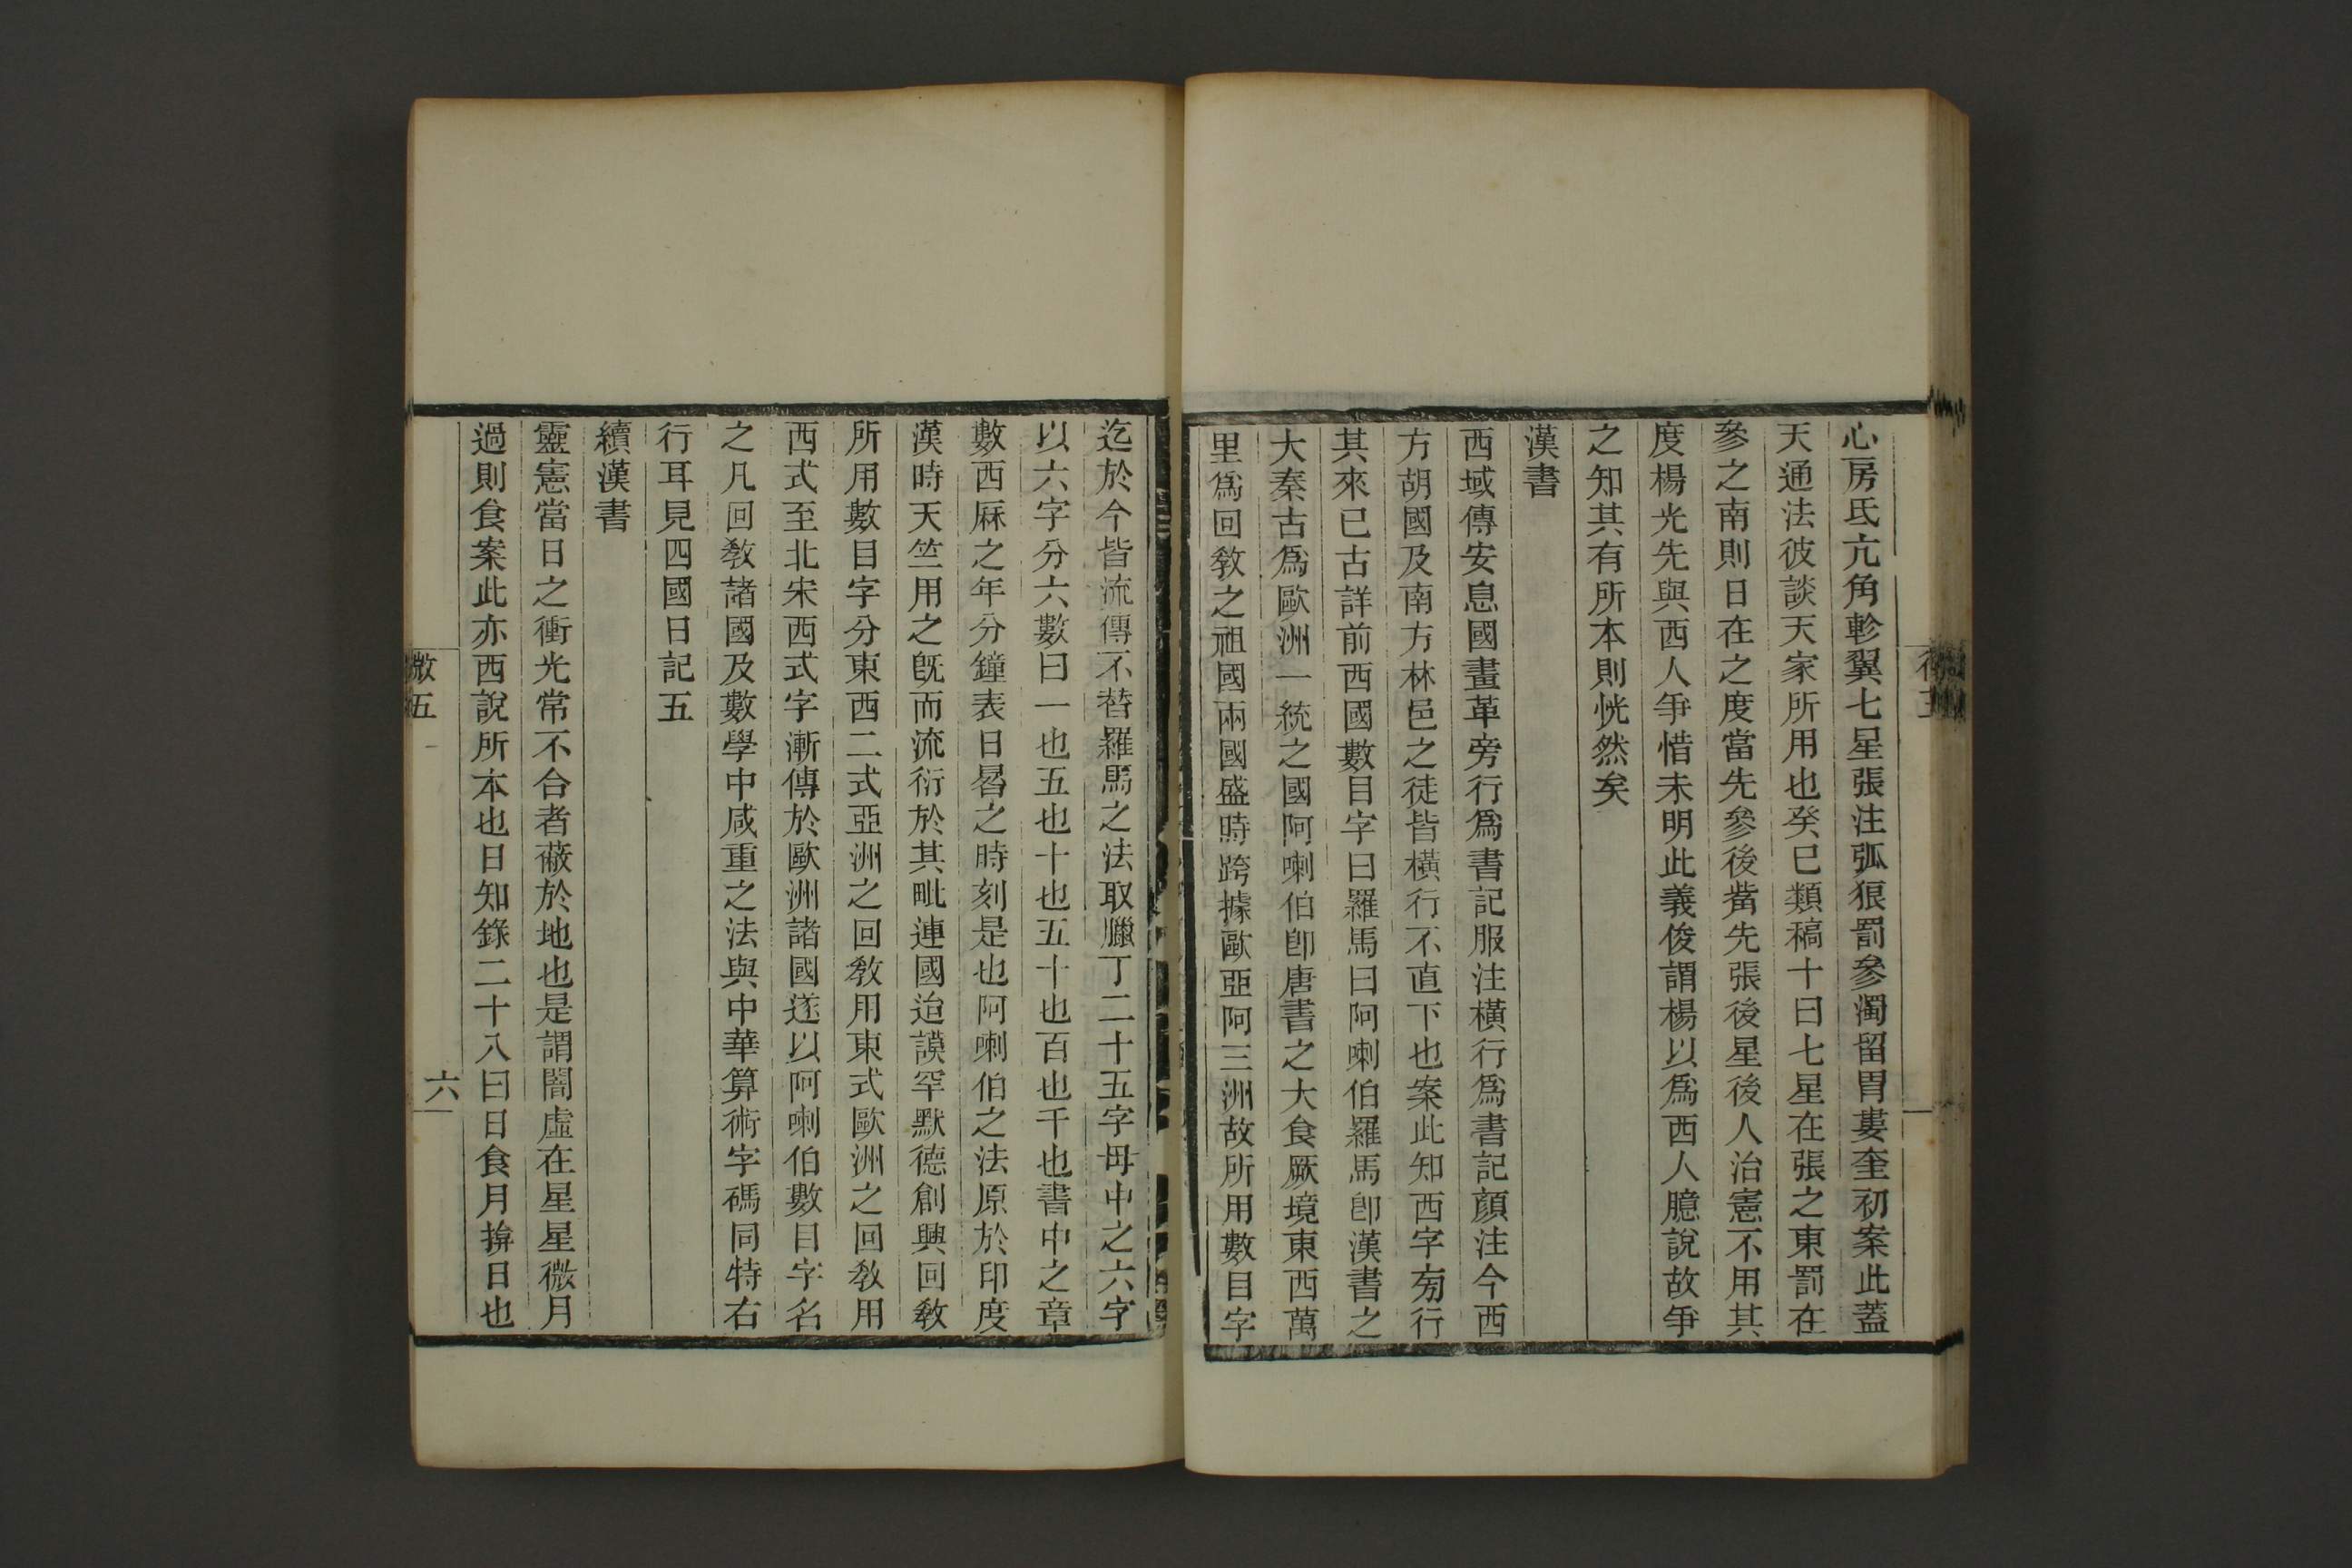 心房氐亢角軫翼七星張注弧狼罰參濁留胃婁奎初案此蓋
天通法彼談天家所用也癸巳類稿十曰七星在張之東罰在
參之南則日在之度當先參後觜先張後星後人治憲不用其
度楊光先與西人爭惜未明此義俊謂楊以爲西人臆說故爭
之知其有所本則恍然矣
漢書
西域傳安息國畫革旁行爲書記服注橫行爲書記顔注今西
方胡國及南方林邑之徒皆橫行不直下也案此知西字㫄行
其來已古詳前西國數目字曰羅馬曰阿喇伯羅馬卽漢書之
大秦古爲歐洲一統之國阿喇伯卽唐書之大食厥境東西萬
里爲回敎之祖國兩國盛時跨據歐亞阿三洲故所用數目字
迄於今皆流傳不替羅馬之法取臘丁二十五字母中之六字
以六字分六數曰一也五也十也五十也百也千也書中之章
數西厤之年分鐘表日晷之時刻是也阿喇伯之法原於印度
漢時天竺用之旣而流衍於其毗連國迨謨罕默德創興回敎
所用數目字分東西二式亞洲之回敎用東式歐洲之回敎用
西式至北宋西式字漸傳於歐洲諸國遂以阿喇伯數目字名
之凡回敎諸國及數學中咸重之法與中華算術字碼同特右
行耳見四國日記五
續漢書
靈憲當日之衝光常不合者蔽於地也是謂闇虛在星星微月
過則食案此亦西說所本也日知錄二十八曰日食月揜日也
微五
六